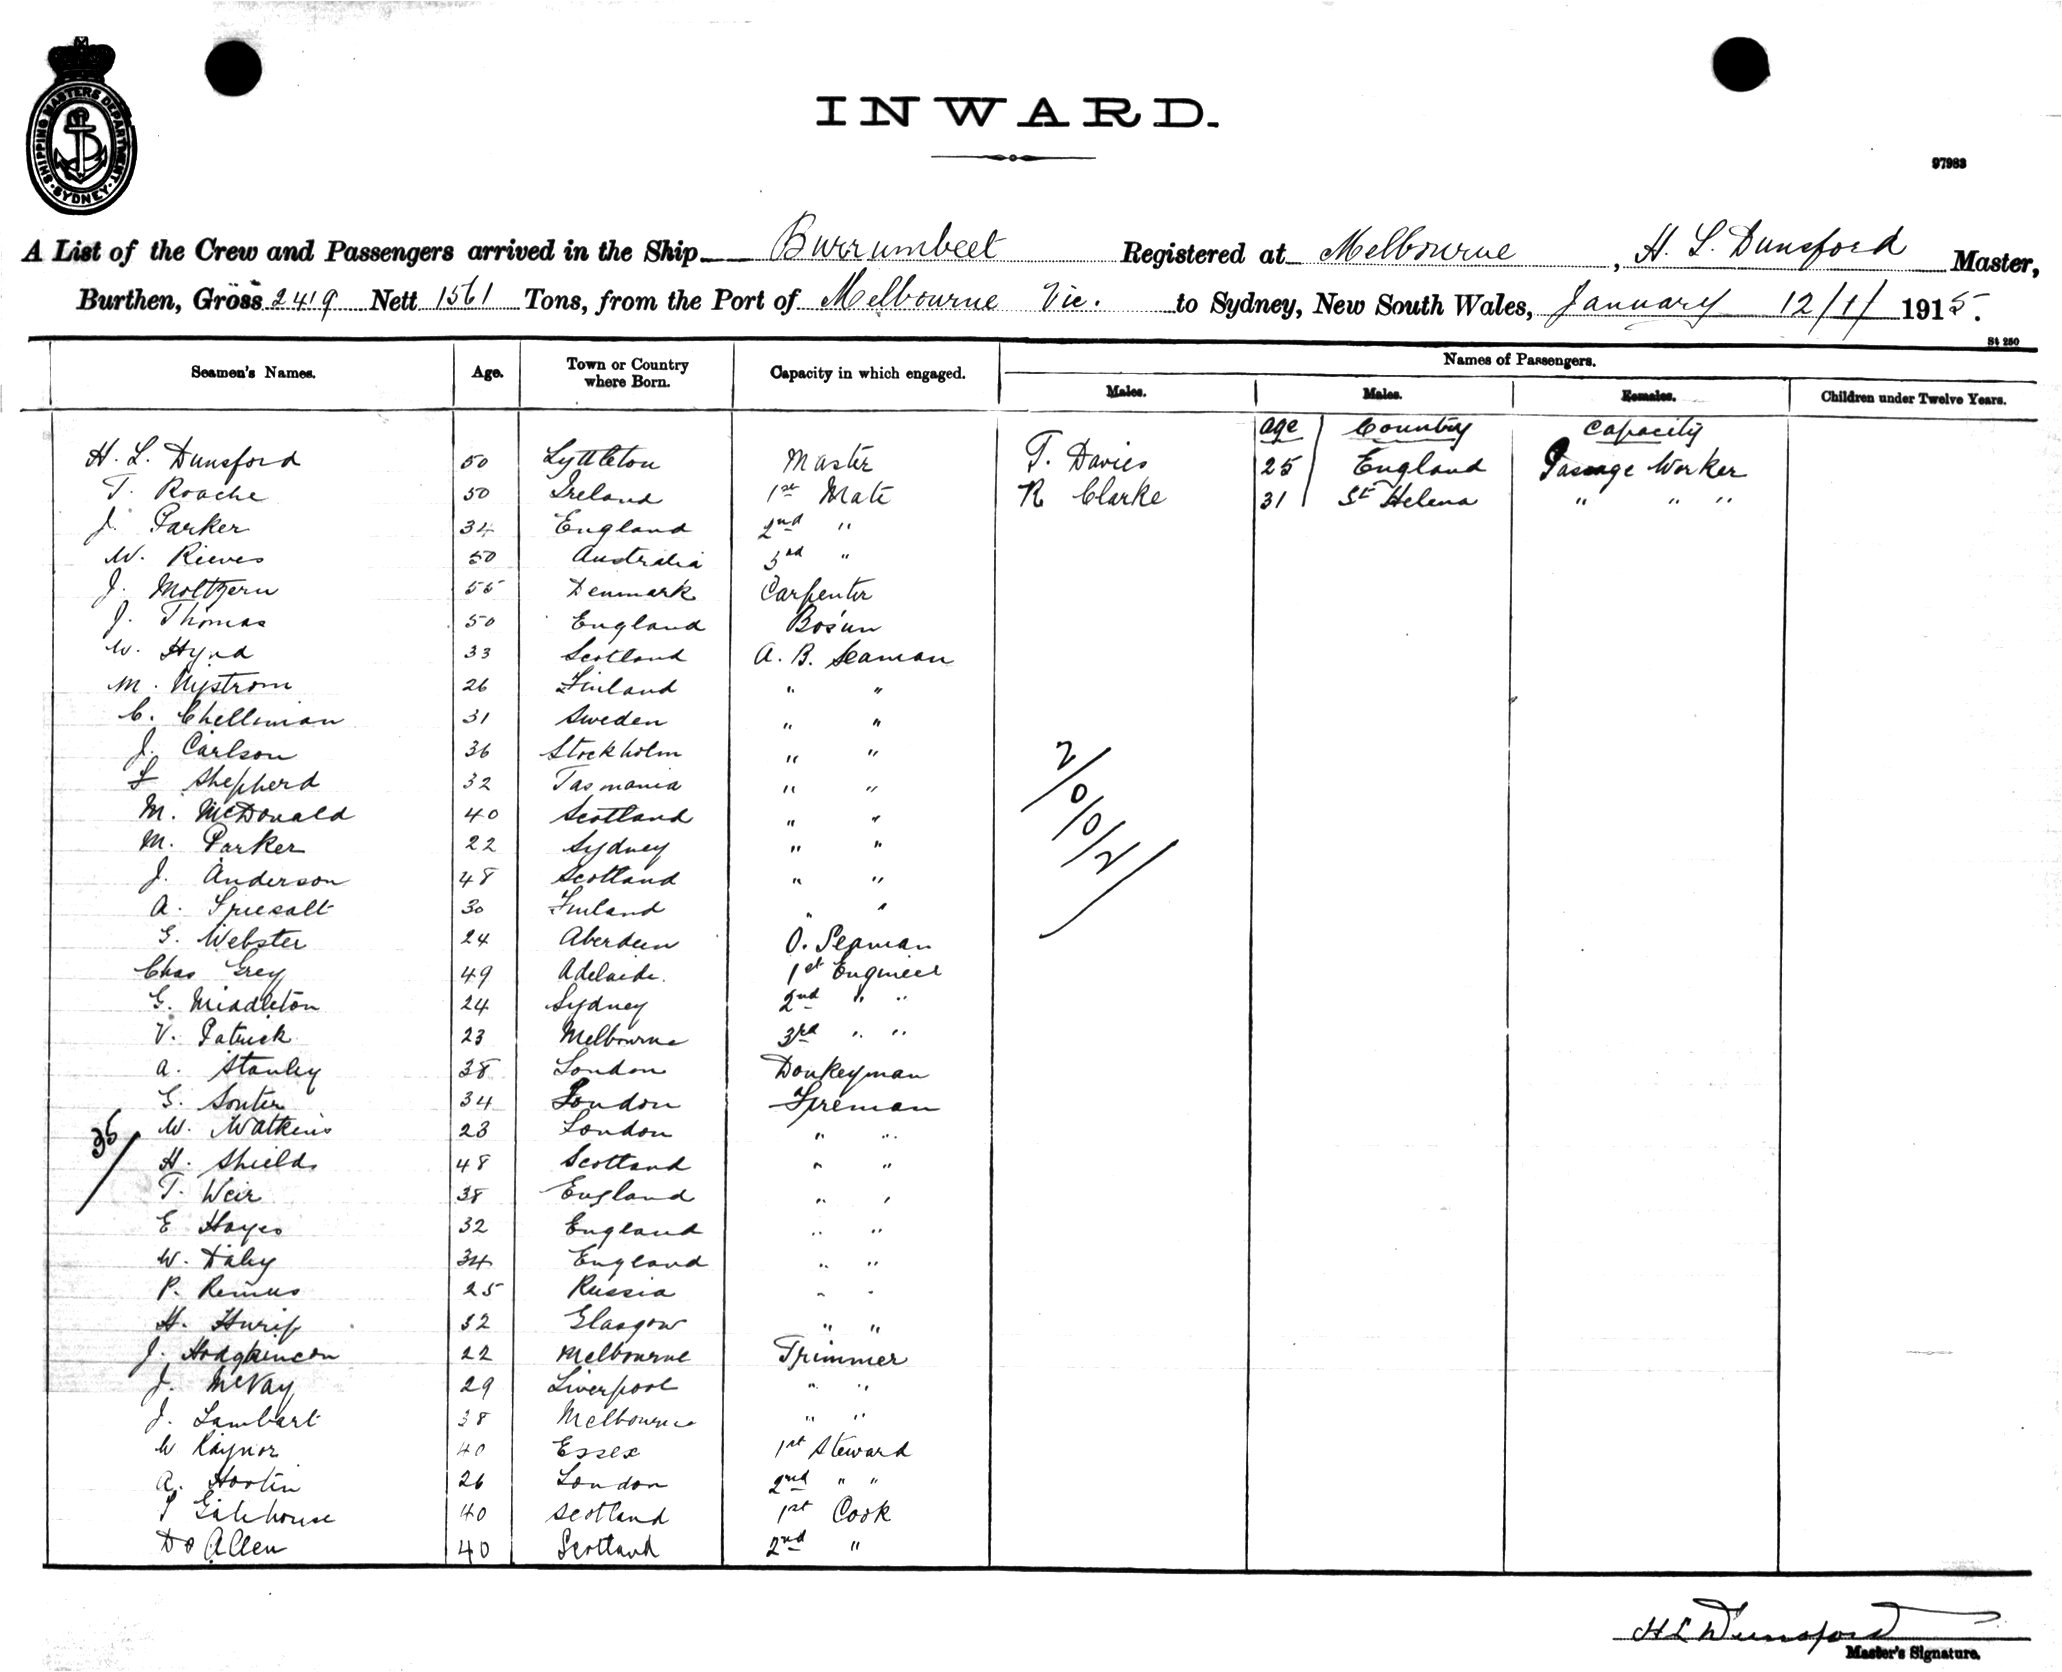 SHIPPING MASTERS DEPARTMENT · SYDNEY ·
INWARD.
97983
A List of the Crew and Passengers arrived in the Ship Burrumbeet Registered at Melbourne, H. L. Dunsford Master,
Burthen, Gross 2419 Nett 1561 Tons, from the Port of Melbourne Vic. to Sydney, New South Wales, January 12/1/ 1915.
St 250
Seamen's Names. Age. Town or Country where Born. Capacity in which engaged. Names of Passengers.
Males. Males. Females. Children under Twelve Years.
Age Country Capacity
H. L. Dunsford 50 Lyttleton Master T. Davies 25 England Passage Worker
T. Roache 50 Ireland 1st Mate R Clarke 31 St Helena " " "
J. Parker 34 England 2nd "
W. Rieves 50 Australia 3rd "
J. 55 Denmark Carpenter
J. Thomas 50 England Bos'un
W. Hynd 33 Scotland A. B. Seaman
M. Nystrom 26 Finland " "
C. Chellman 31 Sweden " "
J. Carlson 36 Stockholm " "
Shepherd 32 Tasmania " "
M. McDonald 40 Scotland " "
M. Parker 22 Sydney " "
J. Anderson 48 Scotland " "
A. 30 Finland " "
G. Webster 24 Aberdeen O. Seaman
Chas Grey 49 Adelaide. 1st Engineer
G. Middleton 24 Sydney 2nd " "
V. Patrick 23 Melbourne 3rd " "
A. Stanley 38 London Donkeyman
G. Souter 34 London Fireman
W. Watkins 23 London " "
H. Shields 48 Scotland " "
T. Weir 38 England " "
E Hayes 32 England " "
W. Daley 34 England " "
P. Remus 25 Russia " "
H. 32 Glasgow " "
J. Hodgkinson 22 Melbourne Trimmer
J. McVay 29 Liverpool " "
J. Lambart 38 Melbourne " "
W Raynor 40 Essex 1st Steward
A. Hortin 26 London 2nd " "
Gatehouse 40 Scotland 1st Cook
Allen 40 Scotland 2nd "
35/
2/0/0/2/
H L Dunsford
Master's Signature.